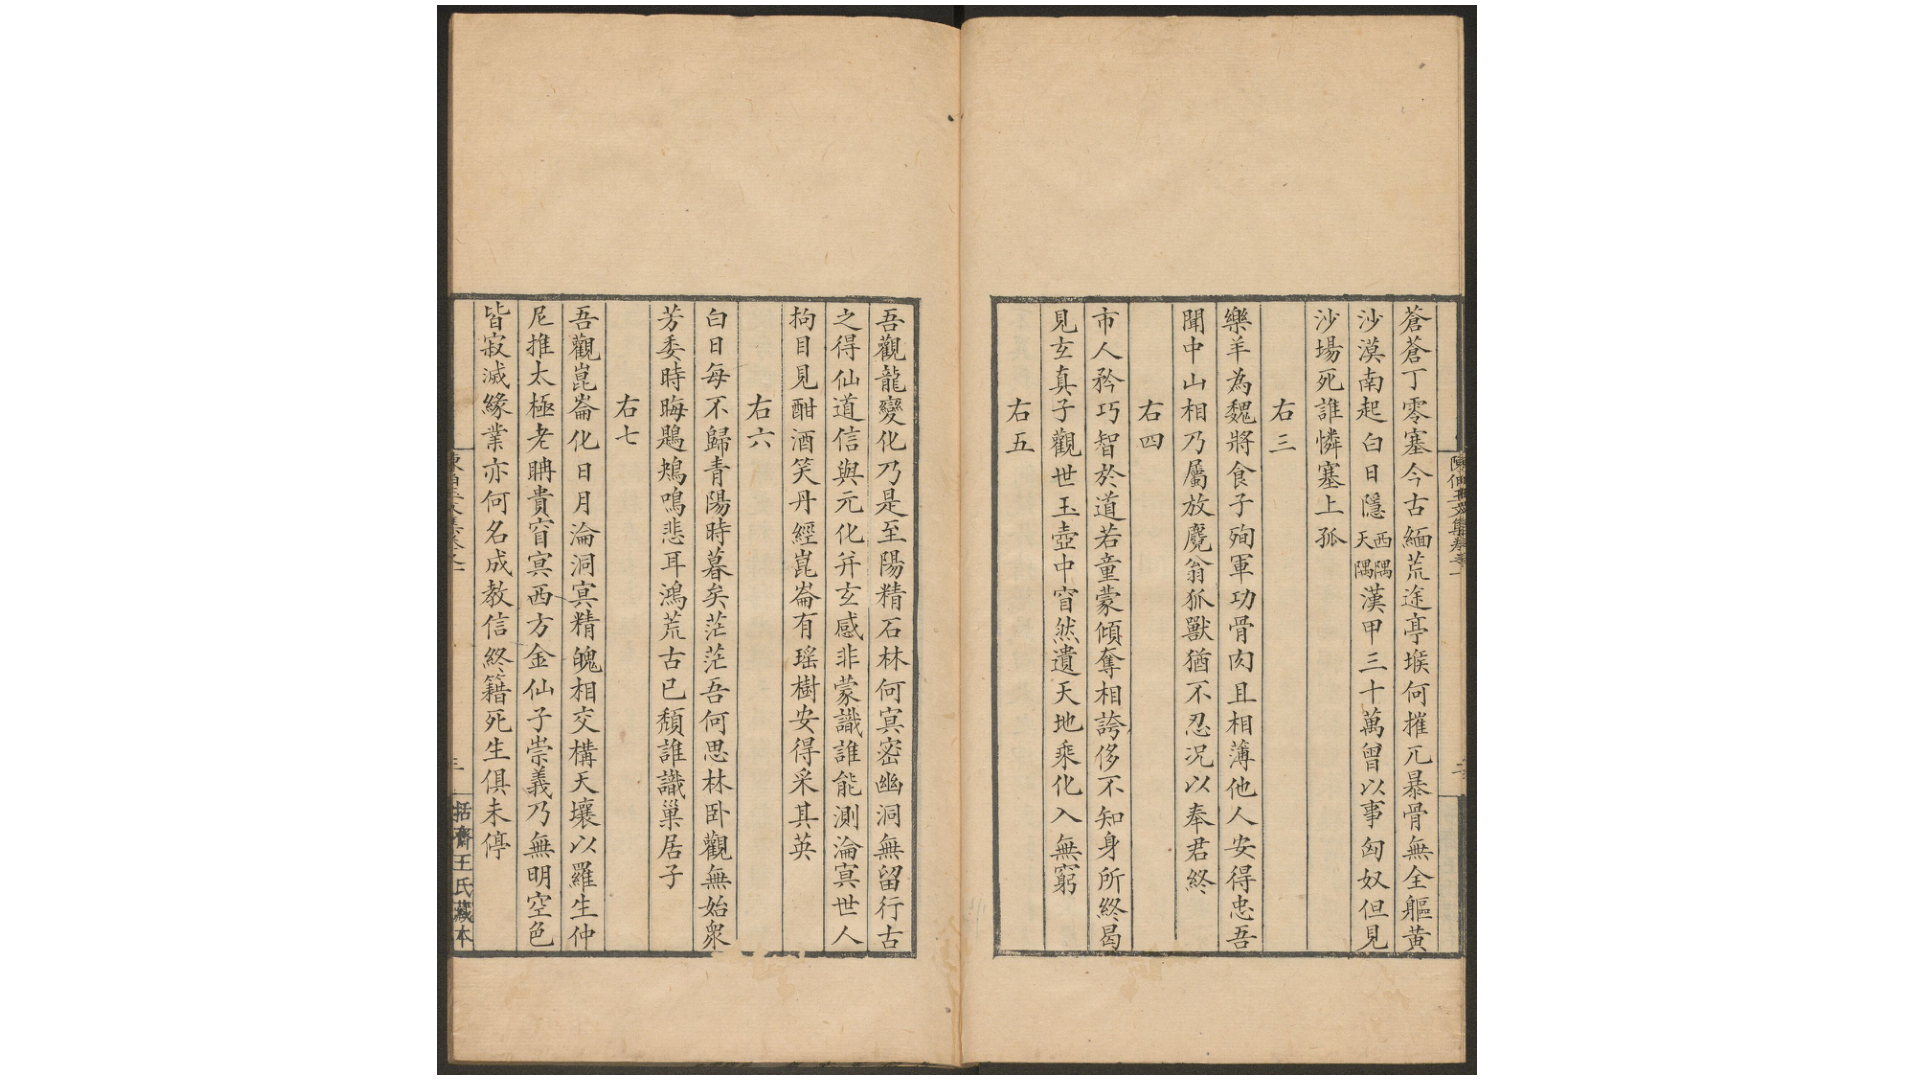 蒼蒼丁零塞今古緬荒途亭堠何摧兀暴骨無全軀黃
沙漠南起白日隱西隅天隅漢甲三十萬曾以事匈奴但見
沙場死誰憐塞上孤
右三
樂羊為魏將食子殉軍功骨肉且相薄他人安得忠吾
聞中山相乃屬放麑翁孤獸猶不忍况以奉君終
右四
市人矜巧智於道若童蒙傾奪相誇侈不知身所終曷
見玄真子觀世玉壺中窅然遺天地乘化入無窮
右五
吾觀龍變化乃是至陽精石林何冥密幽洞無留行古
之得仙道信與元化并玄感非蒙識誰能測淪冥世人
拘目見酣酒笑丹經崑崙有瑤樹安得采其英
右六
白日每不歸青陽時暮矣茫茫吾何思林卧觀無始衆
芳委時晦鶗鴂鳴悲耳鴻荒古已頹誰識巢居子
右七
吾觀崑崙化日月淪洞冥精魄相交構天壤以羅生仲
尼推太極老聃貴窅冥西方金仙子崇義乃無明空色
皆寂滅緣業亦何名成教信終籍死生俱未停
三
括齋王氏藏本